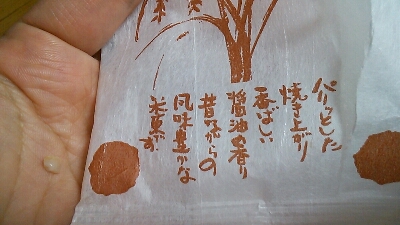 パリッとした
焼き上がり
香ばしい
醤油の香り
昔ながらの
風味豊かな
米菓です